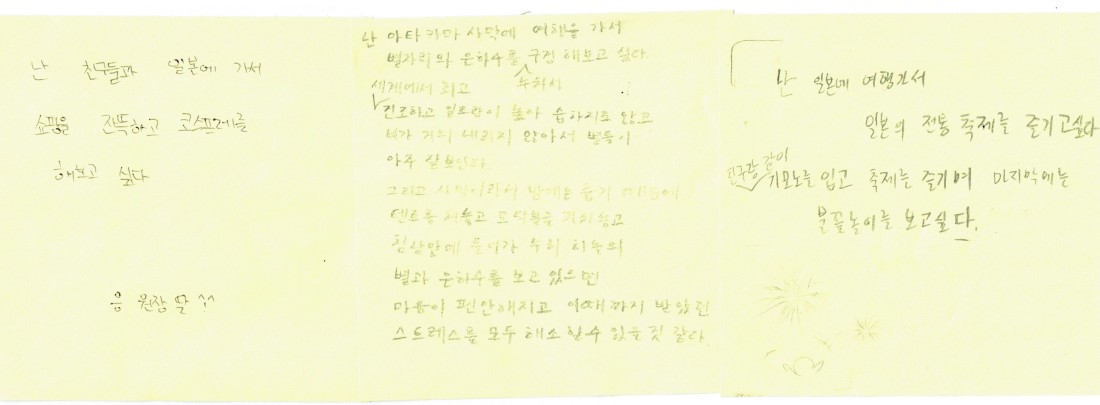 난 친구들과 일본에 가서
쇼핑을 잔뜩하고 코스프레를
해보고 싶다
난 아타카마 사막에 여행을 가서
별자리와 은하수를 구경 해보고 싶다.
세계에서 최고
건조하고 일조량이 높아 습하지도 않고
비가 거의 내리지 않아서 별들이
아주 잘보인다
그리고 사막이라서 밤에는 춥기 때문에
텐트를 세워놓고 모닥불을 피워놓고
침낭안에 들어가 우리 하늘의
별과 은하수를 보고 있으면
마음이 편안해지고 이때까지 받았던
스트레스를 모두 해소 할수 있을 것 같다.
난 일본에 여행가서
일본의 전통 축제를 즐기고싶다
친구랑 같이
기모노를 입고 축제를 즐기며 마지막에는
불꽃놀이를 보고싶다.